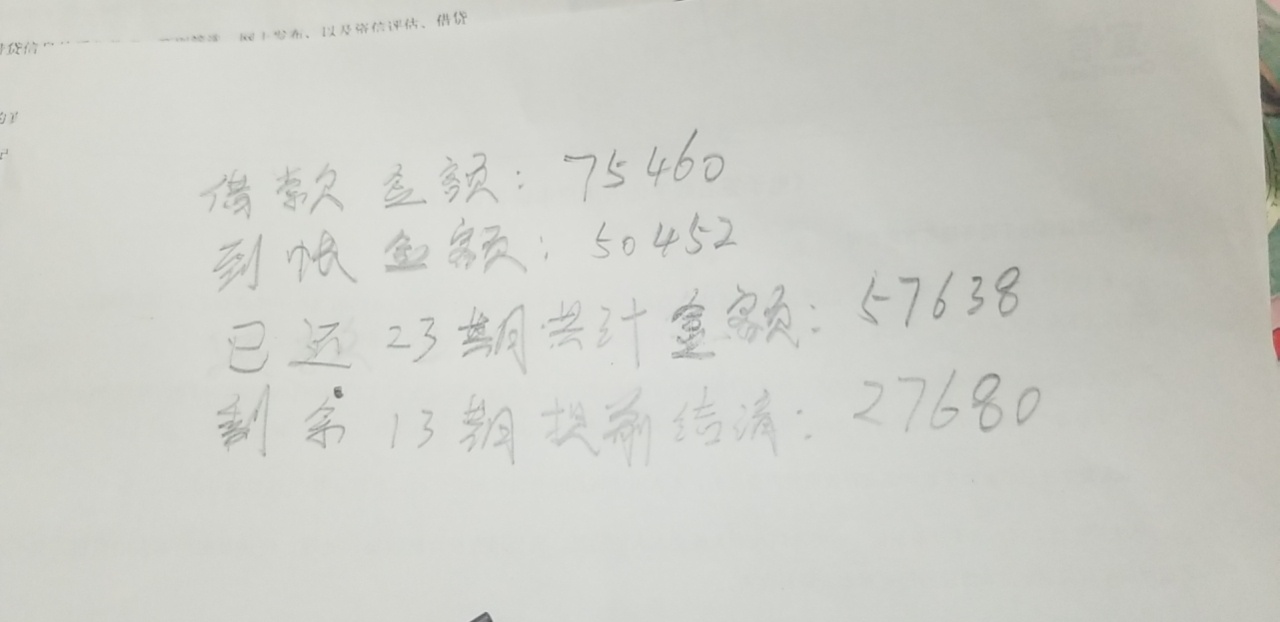 网上发布、以及资信评估、借贷
借款金额：75460
到帐金额：50452
已还23期共计金额：57638
剩余13期提前结清：27680